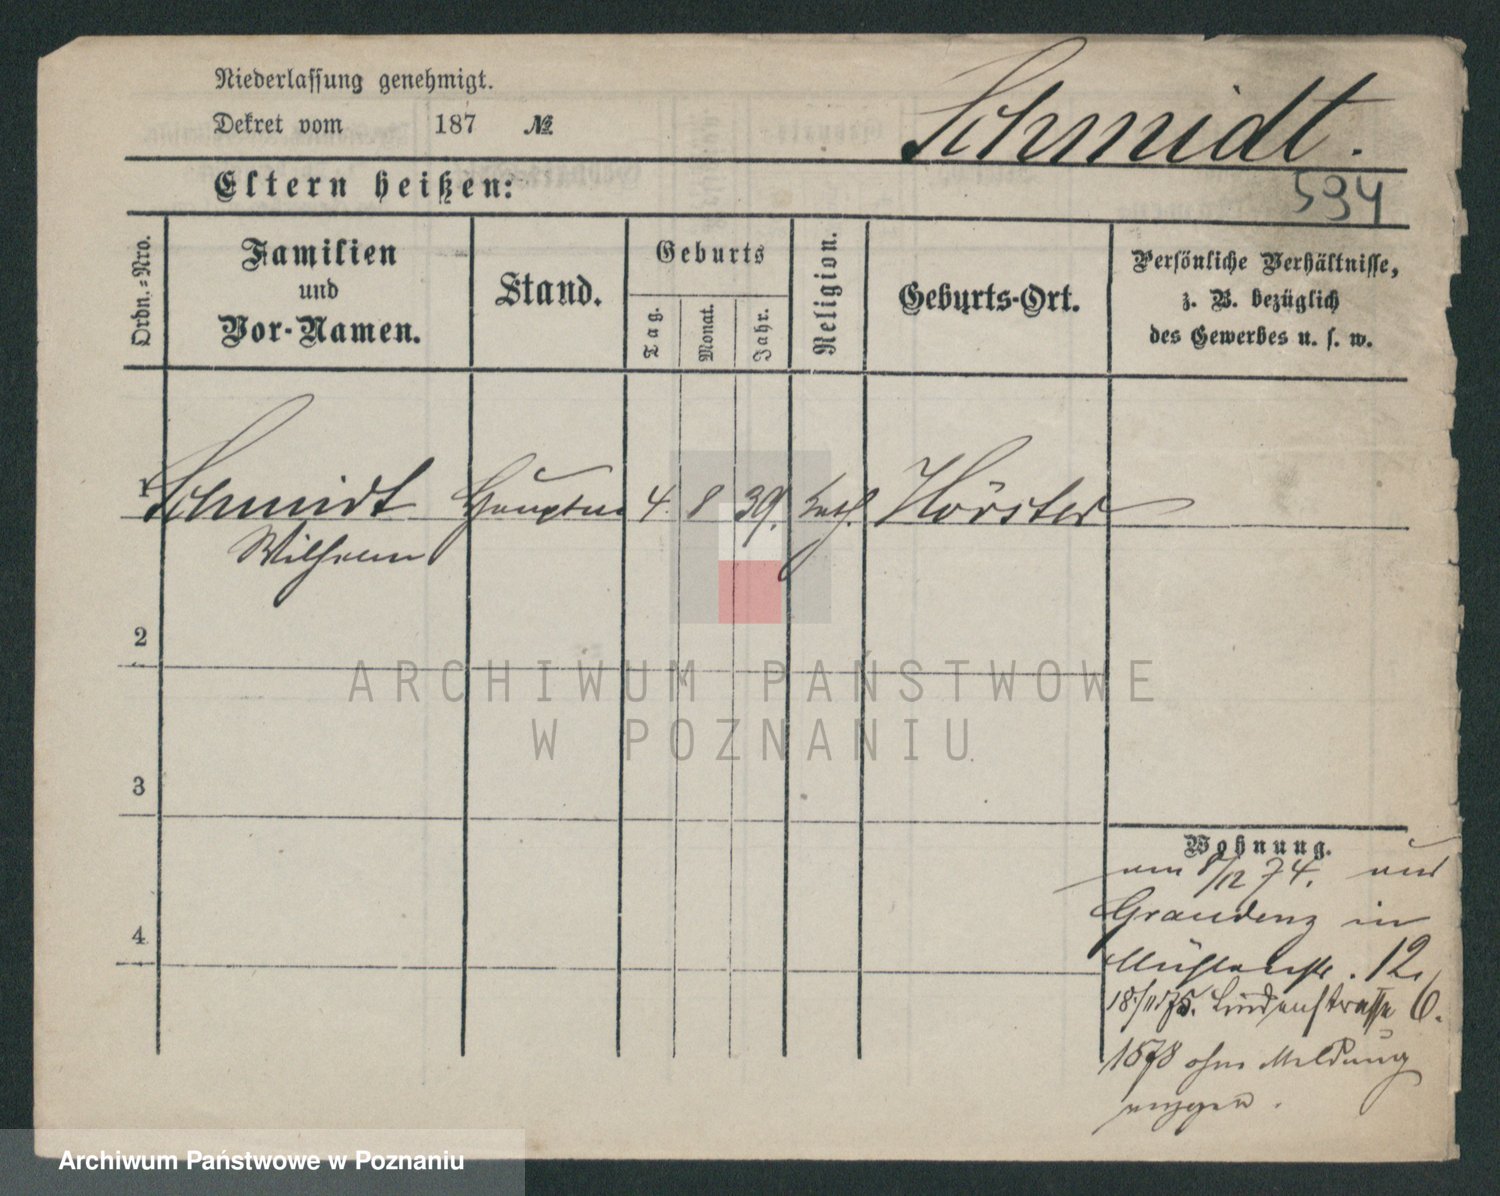 Niederlassung genehmigt.
Dekret vom 187 №
Schmidt.
594
Eltern heißen:
Ordn.-Nro.
Familien
und
Vor-Namen.
Stand.
Geburts
Tag.
Monat.
Jahr.
Religion.
Geburts-Ort.
Persönliche Verhältnisse,
z. B. bezüglich
des Gewerbes u. s. w.
1 Schmidt Hauptm 4. 8 39. kath. Hörster
Wilhelm
2
3
4
Wohnung.
am 8/12 74. aus
Graudenz in
Mühlenstr. 12,
18/11 75. Lindenstrasse 6.
1878 ohne Meldung
ARCHIWUM PAŃSTWOWE
W POZNANIU
Archiwum Państwowe w Poznaniu